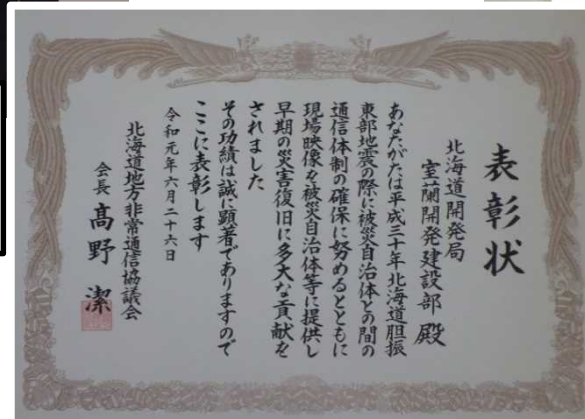 表彰状
北海道開発局
室蘭開発建設部 殿
あなたがたは平成三十年北海道胆振
東部地震の際に被災自治体との間の
通信体制の確保に努めるとともに
現場映像を被災自治体等に提供し
早期の災害復旧に多大な貢献を
されました
その功績は誠に顕著でありますので
ここに表彰します
令和元年六月二十六日
北海道地方非常通信協議会
会長 髙野 潔